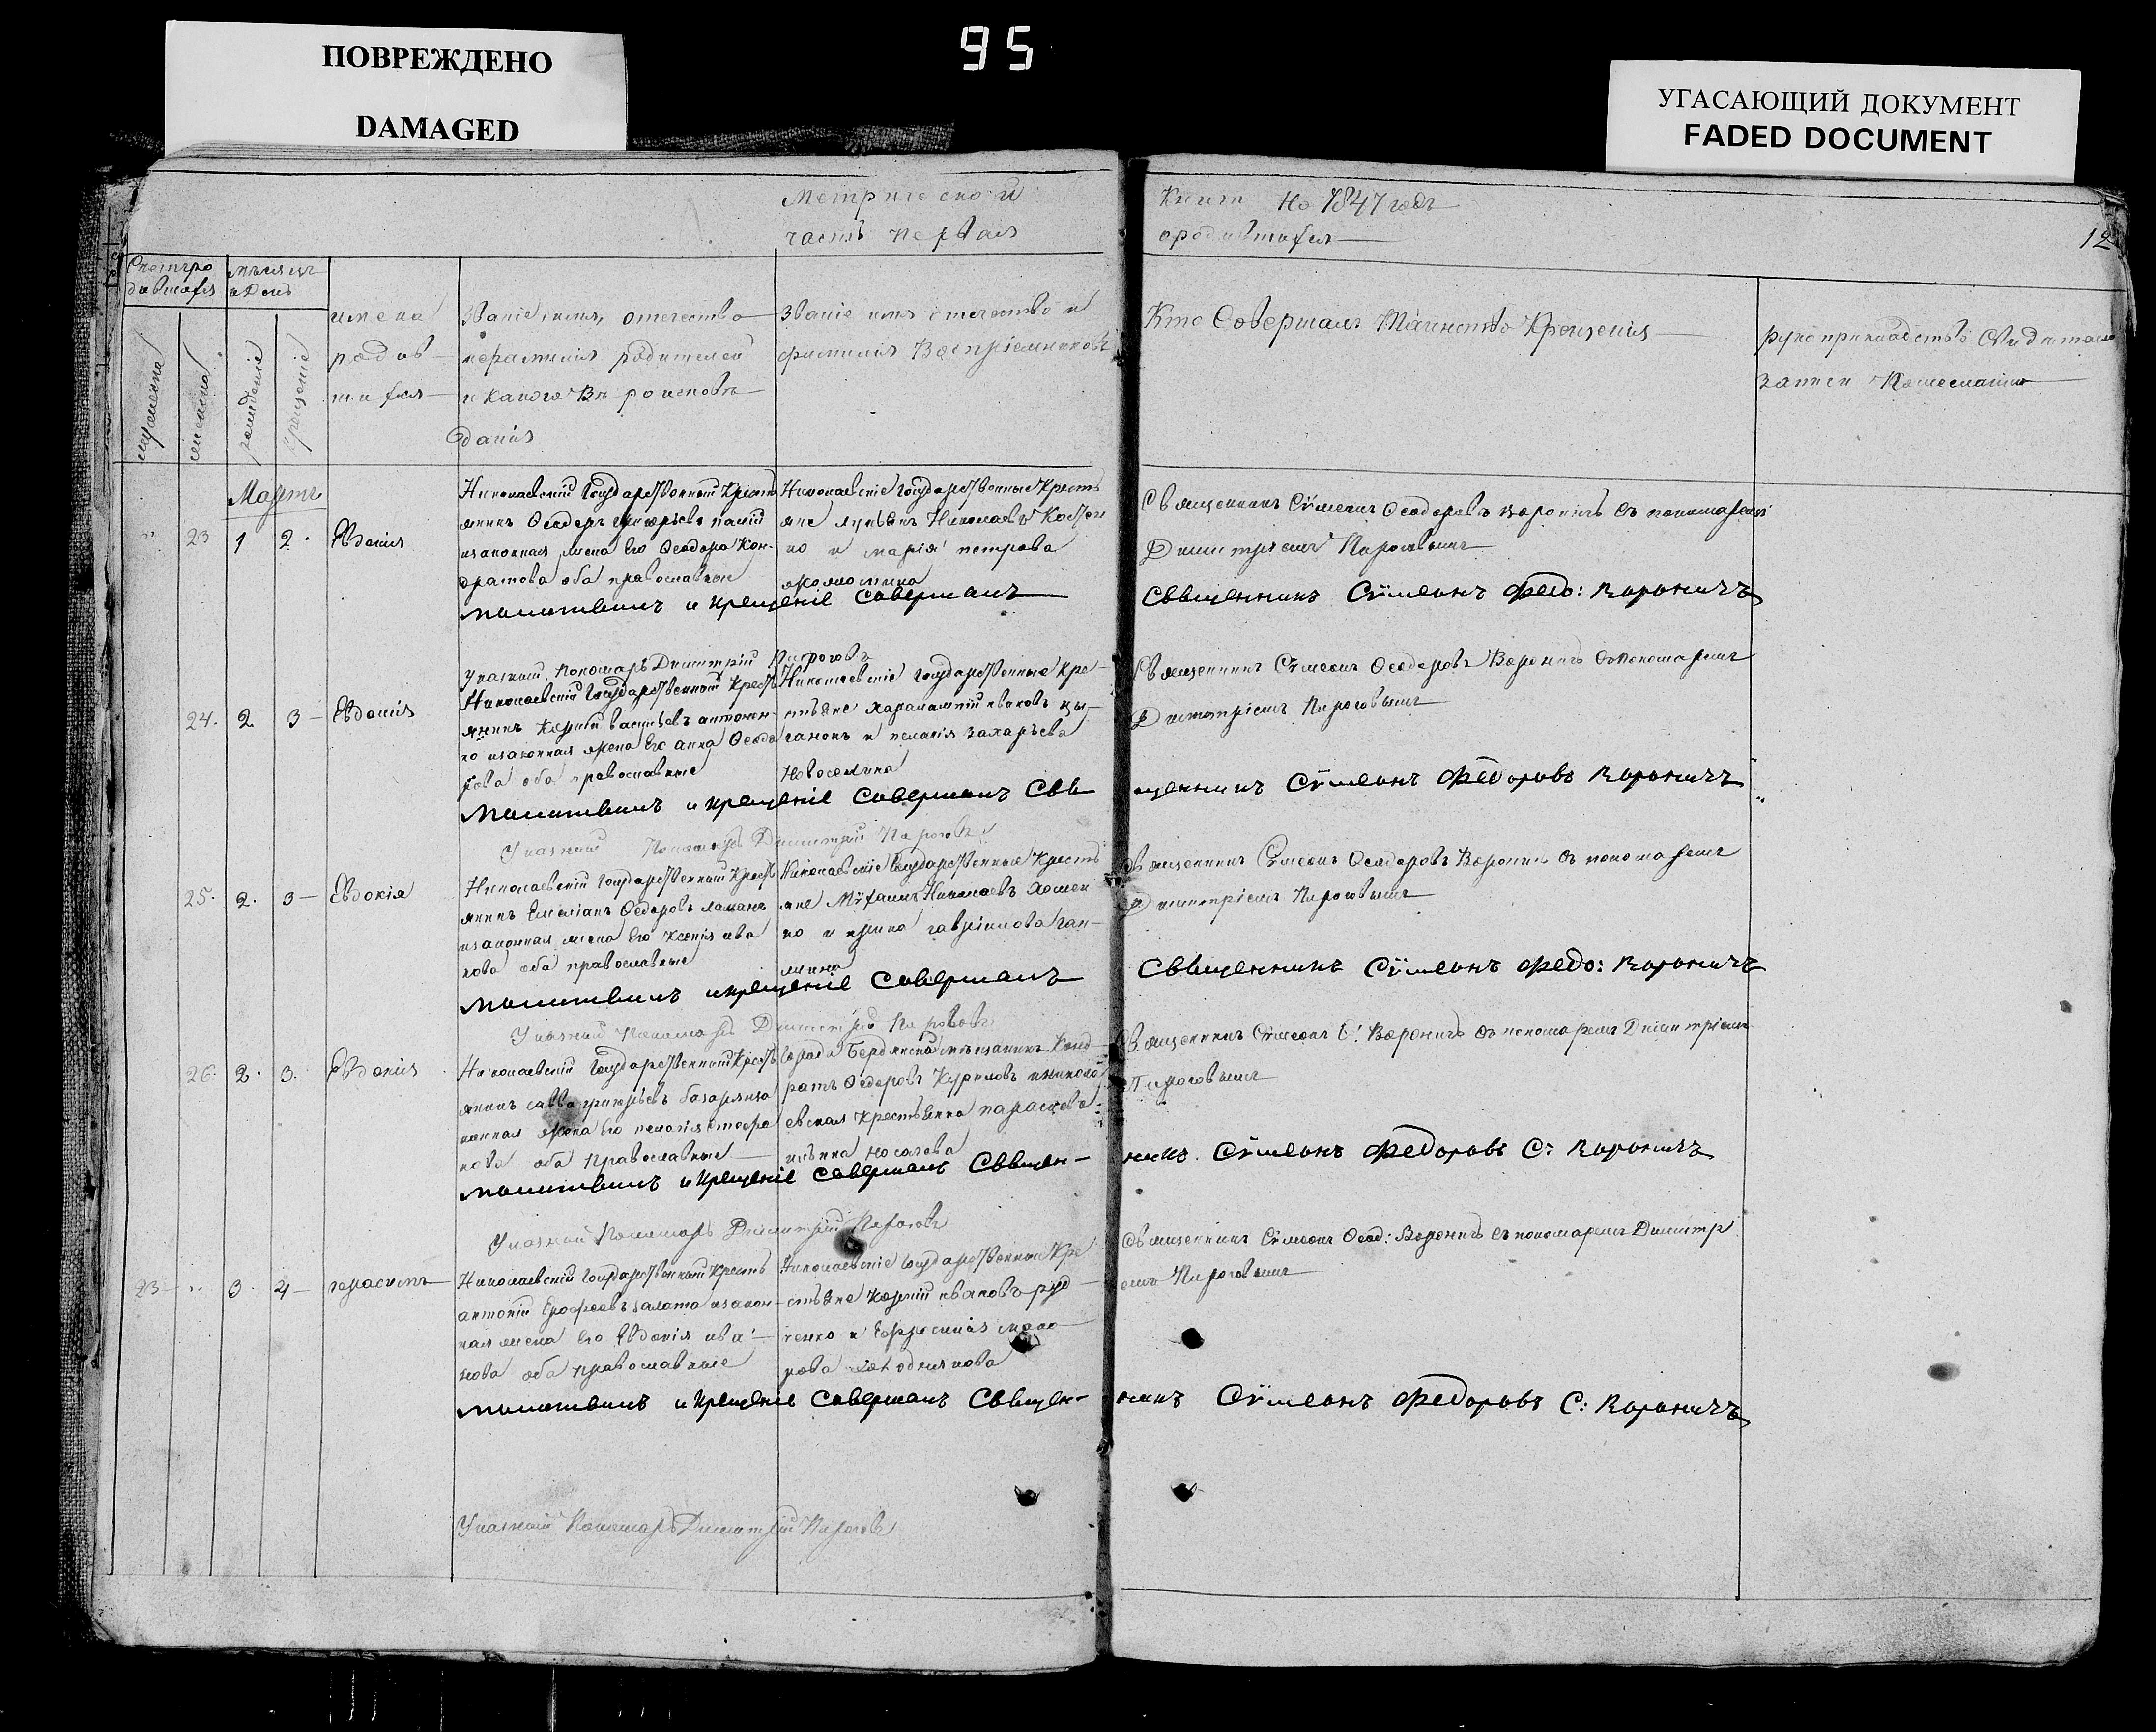 ПОВРЕЖДЕНО
DAMAGED
95
УГАСАЮЩИЙ ДОКУМЕНТ
FADED DOCUMENT
Метрической
часть первая
Книги на 1847 годъ
о родившихся
12
Счетъ ро
дившихся
мѣсяцъ
и день
мужеска
женска
рожденіе
крещеніе
имена
родив
шихся
Званіе, имя, отечество
и фамилія родителей
и какого вѣроисповѣ
данія
Званіе имя отечество и
фамилія Воспріемниковъ
Кто Совершалъ Таинство Крещенія
рукоприкладство Свидѣтелей
записи
Мартъ
23 1 2 Евдокія
Николаевскій Государственный Кресть
янинъ Ѳеодоръ Григорьевъ
и законная жена Его Ѳеодора Кон-
дратова оба православные
Николаевскіе Государственные Кресть
яне Николаевъ
но и Марія Петрова
Священникъ Сѵмеонъ Ѳеодоровъ Вороничъ съ пономаремъ
Димитріемъ Пироговымъ
молитвилъ и крещеніе совершалъ
Священникъ Сѵмеонъ Федо: Вороничъ
Указный Пономарь Димитрій Пироговъ
24. 2 3 Евдокія
Николаевскій Государственный Кресть
янинъ Васильевъ Антонен-
ко и законная жена Его Анна Ѳеодо
рова оба православные
Николаевскіе Государственные Кре-
стьяне Харалампій Ивановъ Цы-
ганокъ и Пелагія Захарьева
Новоселина
Священникъ Сѵмеонъ Ѳеодоровъ Вороничъ съ Пономаремъ
Димитріемъ Пироговымъ
молитвилъ и крещеніе совершалъ Свя
щенникъ Сѵмеонъ Федоровъ Вороничъ
Указный Пономарь Димитрій Пироговъ
25. 2. 3 Евдокія
Николаевскій Государственный Кресть
янинъ Емеліанъ Ѳедоровъ
и законная жена Его Ксенія Ива
нова оба православные
Николаевскіе Государственные Кресть
яне Николаевъ
но и Ирина Гавріилова Ган-
жина
Священникъ Сѵмеонъ Ѳеодоровъ Вороничъ съ пономаремъ
Димитріемъ Пироговымъ
молитвилъ и крещеніе совершалъ
Священникъ Сѵмеонъ Федо: Вороничъ
Указный Пономарь Димитрій Пироговъ
26. 2. 3. Евдокія
Николаевскій Государственный Кресть
янинъ Савва Григорьевъ
конная жена Его Пелагія
нова оба Православные
Города Бердянска мѣщанинъ Конд-
ратъ Ѳедоровъ Куриловъ и никола
евская Крестьянка Параскева
Носачева
Священникъ Сѵмеонъ Ѳ: Вороничъ съ пономаремъ Димитріемъ
Пироговымъ
молитвилъ и крещеніе совершалъ Священ-
никъ Сѵмеонъ Федоровъ С: Вороничъ
Указный Пономарь Димитрій Пироговъ
23 3. 4 Герасимъ
Николаевскій Государственный Кресть
Антоній Ерофеевъ и закон-
ная жена Его Евдокія Ива-
нова оба православные
Николаевскіе Государственные Кре
стьяне Ивановъ Руд
ченко и Ефросинія
Священникъ Сѵмеонъ Ѳеод: Вороничъ съ пономаремъ Димитрі
емъ Пироговымъ
молитвилъ и крещеніе совершалъ Священ-
никъ Сѵмеонъ Федоровъ С: Вороничъ
Указный Пономарь Димитрій Пироговъ